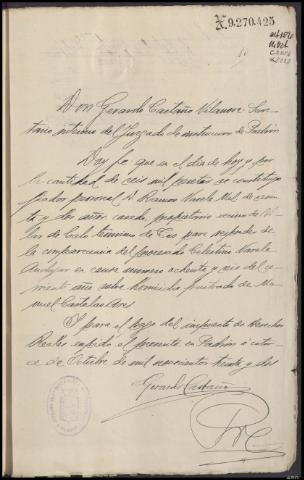 X.9.270.425
Don Gerardo Castaño Vilanova Secre-
tario interino del Juzgado de instruccion de Padrón
Doy fe que en el dia de hoy y por
la cantidad de seis mil pesetas se constituyo
fiador personal D. Ramon Varela de
ta y dos años casado, propietario vecino de
termino de Teo para responder de
la comparecencia del procesado Celestino Varela
en causa numero ochenta y seis del co-
rriente año sobre homicidio frustrado de Ma-
nuel Castelao Ares
Y para el pago del impuesto de Derechos
Reales expido el presente en Padrón a cator-
ce de Octubre de mil novecientos treinta y dos
Gerardo Castaño